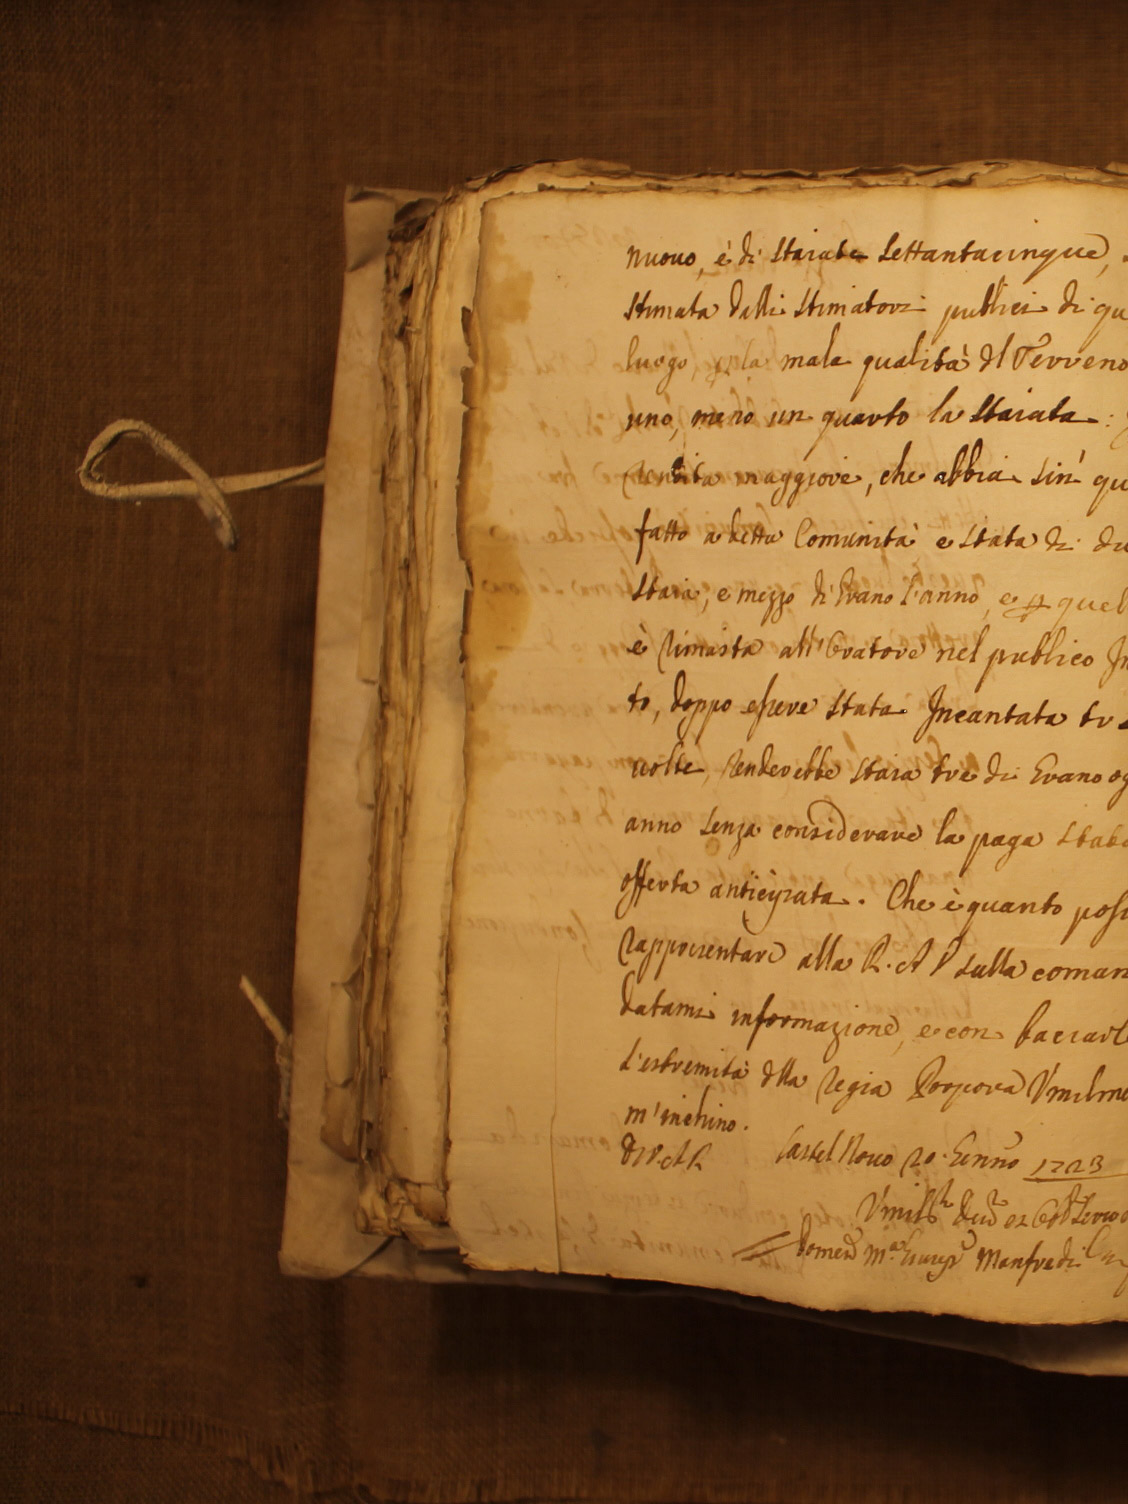 nuovo, è di Staiate Settantacinque,
stimata dalli Stimatori publici di qu
luogo, p la mala qualità dl Terreno
uno, meno un quarto la Staiata :
rendita maggiore, che abbia sin' qu
fatto a detta Comunità è stata di du
Staia, e mezzo di Grano l'anno, e p quel
è rimasta all'Oratore nel publico In
to, doppo essere stata Incantata tr
volte, renderebbe staia tre di Grano og
anno senza considerare la paga stab
offerta anticipata. Che è quanto poss
rappresentare alla R. A V sulla coman
datami informazione, e con baciarl
l'estremità dlla regia Porpora Umilme
m'inchino.
Castel Novo 20. Genno 1723
Domen Ma Manfredi